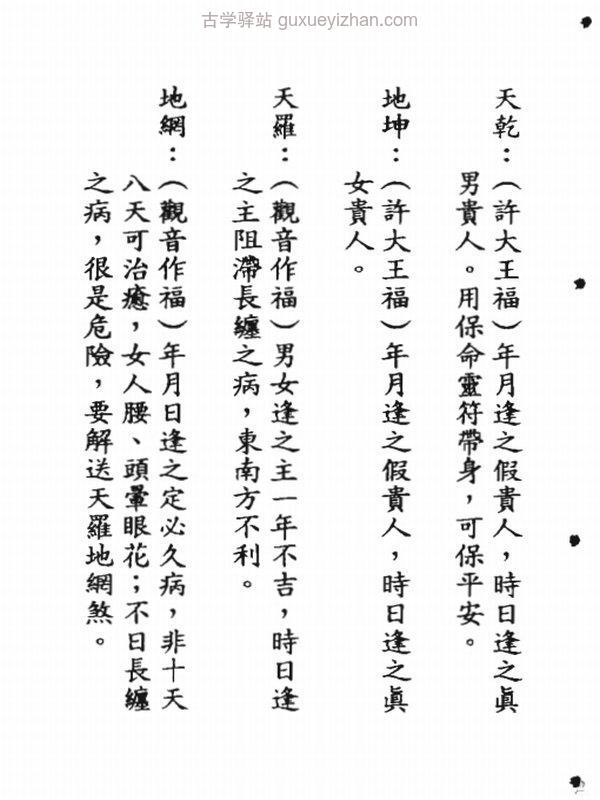 古学驿站 guxueyizhan.com
天乾：（許大王福）年月逢之假貴人，時日逢之眞
男貴人。用保命靈符帶身，可保平安。
地坤：（許大王福）年月逢之假貴人，時日逢之眞
女貴人。
天羅：（觀音作福）男女逢之主一年不吉，時日逢
之主阻滯長纏之病，東南方不利。
地網：（觀音作福）年月日逢之定必久病，非十天
八天可治癒，女人腰、頭暈眼花；不日長纏
之病，很是危險，要解送天羅地網煞。